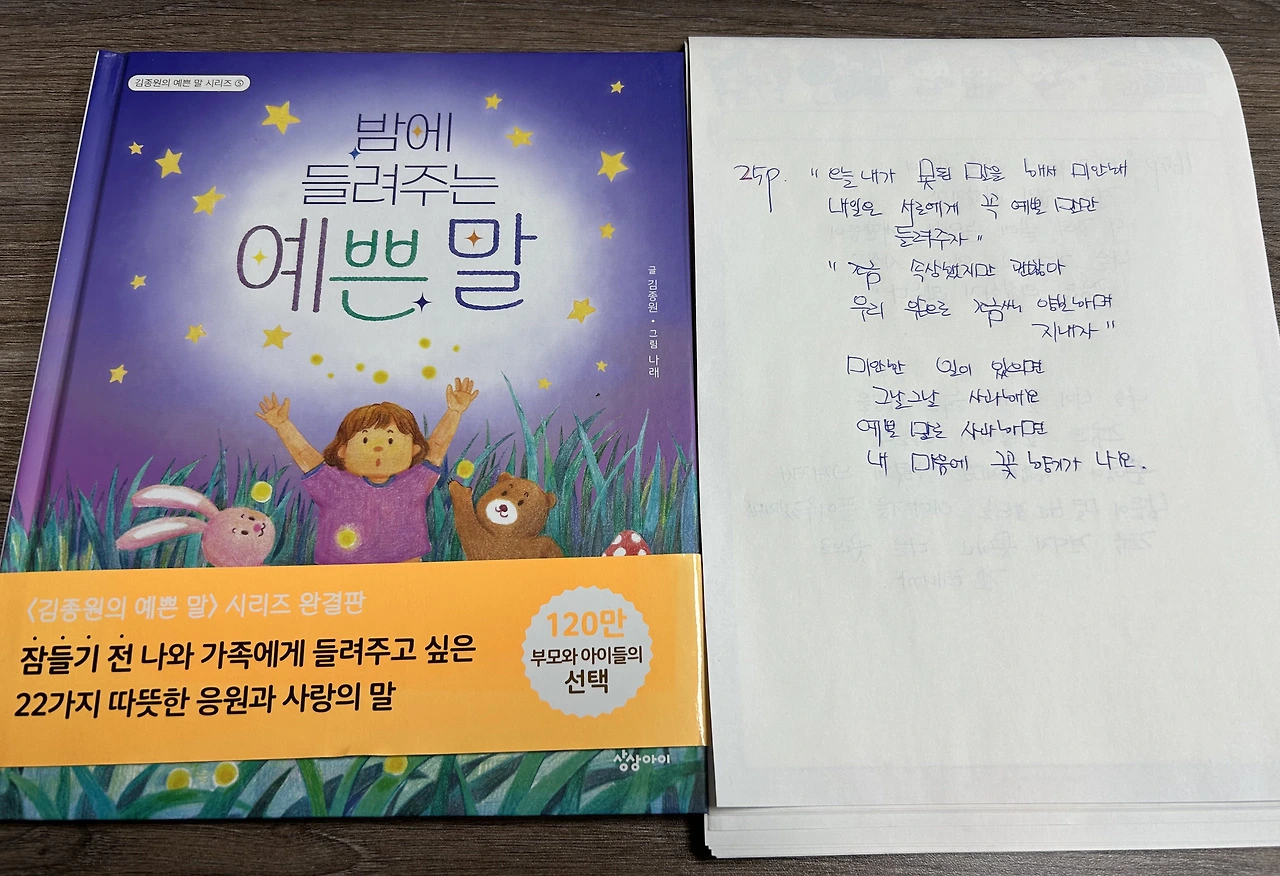 김종원의 예쁜 말 시리즈 ⑤
밤에
들려주는
예쁜 말
글 김종원 · 그림 나래
〈김종원의 예쁜 말〉 시리즈 완결판
잠들기 전 나와 가족에게 들려주고 싶은
22가지 따뜻한 응원과 사랑의 말
120만
부모와 아이들의
선택
상상아이
25p. " 오늘 내가 못된 말을 해서 미안해
내일은 서로에게 꼭 예쁜 말만
들려주자 "
" 조금 속상했지만 괜찮아
우리 앞으로 조금씩 양보하며
지내자 "
미안한 일이 있으면
그날그날 사과해요
예쁜 말로 사과하면
내 마음에 꽃 향기가 나요.